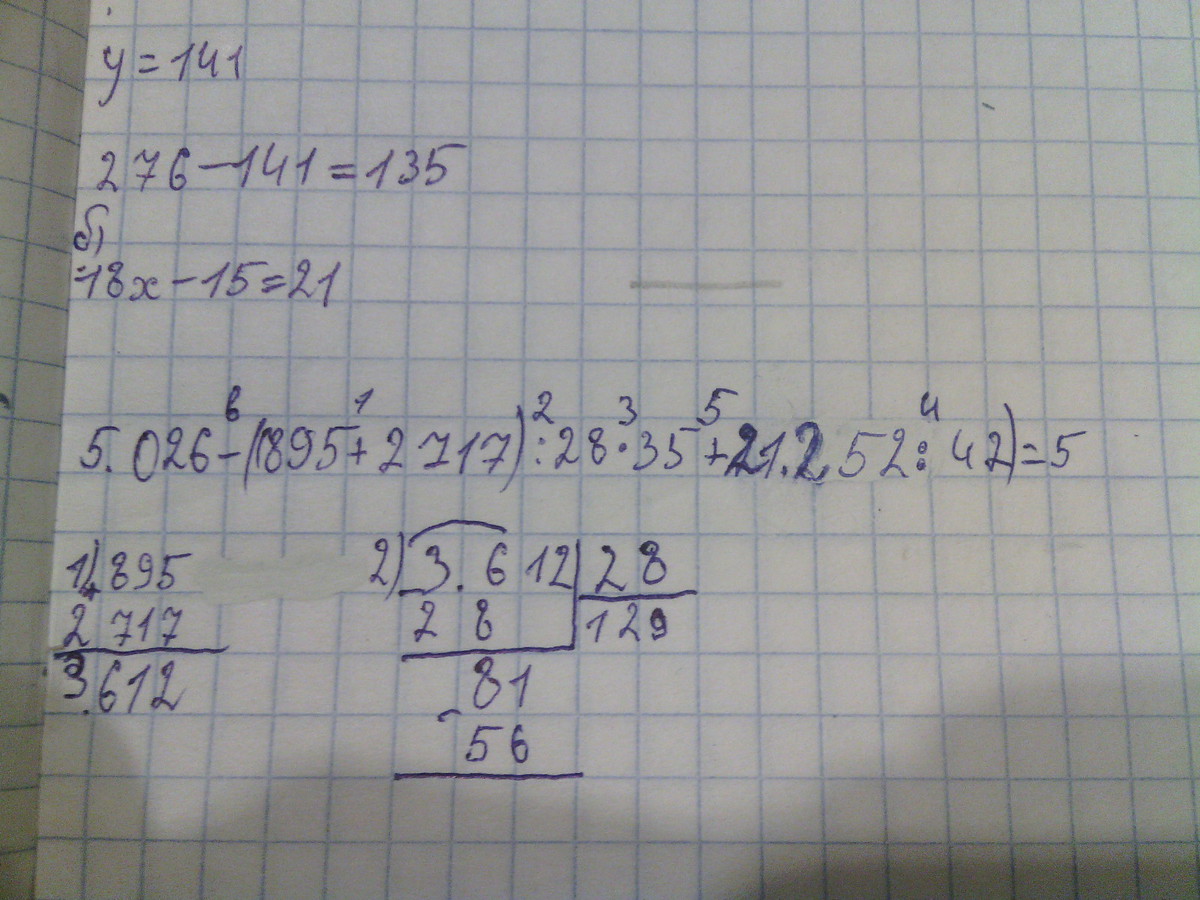 y = 141
276 - 141 = 135
б)
18x - 15 = 21
6 1 2 3 5 4
5.026 - ((895 + 2 717) : 28 · 35 + 21.252 : 42) = 5
1) 895
+
2 717
3.612
2) 3.612 | 28
- 2 8 129
81
- 56